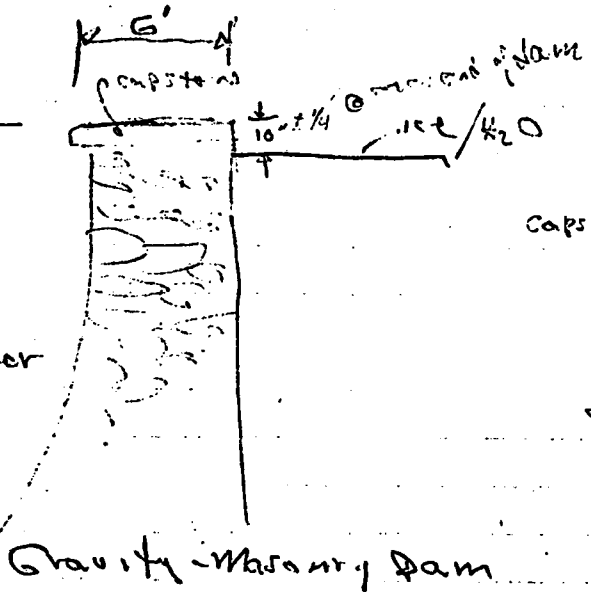 6'
capstones
10" ± 1/4 @ end of dam
ice / H2O
caps
er
Gravity-Masonry Dam